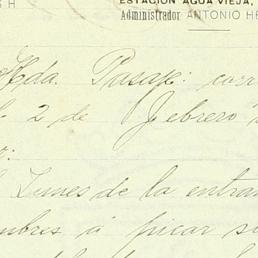 ESTACIÓN AGUA VIEJA,
Administrador ANTONIO HE
Hda. Pasaje: corr
2 de Febrero
Lunes de la entran
mbres á picar su